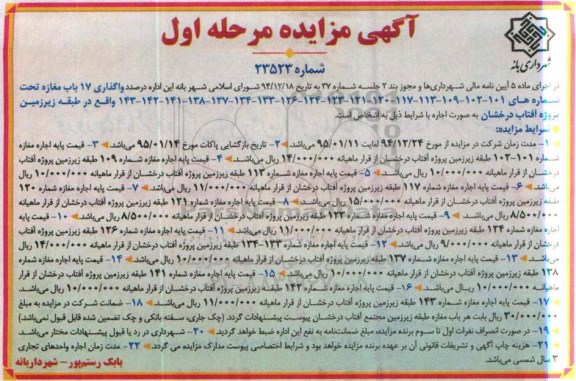 آگهی مزایده مرحله اول
شماره ۲۳۵۲۳
شهرداری بانه
در اجرای ماده ۵ آیین نامه مالی شهرداری‌ها و مجوز بند ۲ جلسه شماره ۳۷ به تاریخ ۹۴/۱۲/۱۸ شورای اسلامی شهر بانه این اداره درصدد واگذاری ۱۷ باب مغازه تحت
شماره های ۱۰۱-۱۰۲-۱۰۹-۱۱۳-۱۱۷-۱۲۰-۱۲۱-۱۲۳-۱۲۴-۱۲۶-۱۳۳-۱۳۴-۱۳۷-۱۳۸-۱۴۱-۱۴۲-۱۴۳ واقع در طبقه زیرزمین
پروژه آفتاب درخشان به صورت اجاره با شرایط ذیل به اشخاص است.
شرایط مزایده:
۱- مدت زمان شرکت در مزایده از مورخ ۹۴/۱۲/۲۴ لغایت ۹۵/۰۱/۱۱ می‌باشد. ۲- تاریخ بازگشایی پاکات مورخ ۹۵/۰۱/۱۴ می‌باشد. ۳- قیمت پایه اجاره مغازه
شماره ۱۰۱-۱۰۲ طبقه زیرزمین پروژه آفتاب درخشان از قرار ماهیانه ۱۴/۰۰۰/۰۰۰ ریال می‌باشد. ۴- قیمت پایه اجاره مغازه شماره ۱۰۹ طبقه زیرزمین پروژه آفتاب
درخشان از قرار ماهیانه ۱۰/۰۰۰/۰۰۰ ریال می‌باشد. ۵- قیمت پایه اجاره مغازه شماره ۱۱۳ طبقه زیرزمین پروژه آفتاب درخشان از قرار ماهیانه ۱۰/۰۰۰/۰۰۰ ریال
می‌باشد. ۶- قیمت پایه اجاره مغازه شماره ۱۱۷ طبقه زیرزمین پروژه آفتاب درخشان از قرار ماهیانه ۱۱/۰۰۰/۰۰۰ ریال می‌باشد. ۷- قیمت پایه اجاره مغازه شماره ۱۲۰
طبقه زیرزمین پروژه آفتاب درخشان از قرار ماهیانه ۱۵/۰۰۰/۰۰۰ ریال می‌باشد. ۸- قیمت پایه اجاره مغازه شماره ۱۲۱ طبقه زیرزمین پروژه آفتاب درخشان از قرار ماهیانه
۸/۵۰۰/۰۰۰ ریال می‌باشد. ۹- قیمت پایه اجاره مغازه شماره ۱۲۳ طبقه زیرزمین پروژه آفتاب درخشان از قرار ماهیانه ۸/۵۰۰/۰۰۰ ریال می‌باشد. ۱۰- قیمت پایه
اجاره مغازه شماره ۱۲۴ طبقه زیرزمین پروژه آفتاب درخشان از قرار ماهیانه ۱۱/۰۰۰/۰۰۰ ریال می‌باشد. ۱۱- قیمت پایه اجاره مغازه شماره ۱۲۶ طبقه زیرزمین پروژه آفتاب
درخشان از قرار ماهیانه ۹/۰۰۰/۰۰۰ ریال می‌باشد. ۱۲- قیمت پایه اجاره مغازه شماره ۱۳۳-۱۳۴ طبقه زیرزمین پروژه آفتاب درخشان از قرار ماهیانه ۱۴/۰۰۰/۰۰۰ ریال
می‌باشد. ۱۳- قیمت پایه اجاره مغازه شماره ۱۳۷ طبقه زیرزمین پروژه آفتاب درخشان از قرار ماهیانه ۱۰/۰۰۰/۰۰۰ ریال می‌باشد. ۱۴- قیمت پایه اجاره مغازه شماره
۱۳۸ طبقه زیرزمین پروژه آفتاب درخشان از قرار ماهیانه ۱۰/۰۰۰/۰۰۰ ریال می‌باشد. ۱۵- قیمت پایه اجاره مغازه شماره ۱۴۱ طبقه زیرزمین پروژه آفتاب درخشان از قرار
ماهیانه ۱۰/۰۰۰/۰۰۰ ریال می‌باشد. ۱۶- قیمت پایه اجاره مغازه شماره ۱۴۲ طبقه زیرزمین پروژه آفتاب درخشان از قرار ماهیانه ۱۱/۰۰۰/۰۰۰ ریال می‌باشد.
۱۷- قیمت پایه اجاره مغازه شماره ۱۴۳ طبقه زیرزمین پروژه آفتاب درخشان از قرار ماهیانه ۱۱/۰۰۰/۰۰۰ ریال می‌باشد. ۱۸- ضمانت شرکت در مزایده به مبلغ
۳۰/۰۰۰/۰۰۰ ریال بابت هر باب مغازه طبقه زیرزمین مجتمع آفتاب درخشان پیوست پیشنهادات گردد. (چک جاری، سفته بانکی و چک تضمین شده قابل قبول نمی‌باشد)
۱۹- در صورت انصراف نفرات اول تا سوم برنده مزایده، مبلغ ضمانت‌نامه به نفع این اداره ضبط خواهد گردید. ۲۰- شهرداری در رد یا قبول پیشنهادات مختار می‌باشد.
۲۱- هزینه چاپ آگهی و تشریفات قانونی آن بر عهده برنده مزایده خواهد بود و شرایط اختصاصی پیوست مدارک مزایده می گردد. ۲۲- مدت زمان اجاره واحدهای تجاری
۳ سال شمسی می‌باشد.
بابک رستم‌پور- شهردار بانه